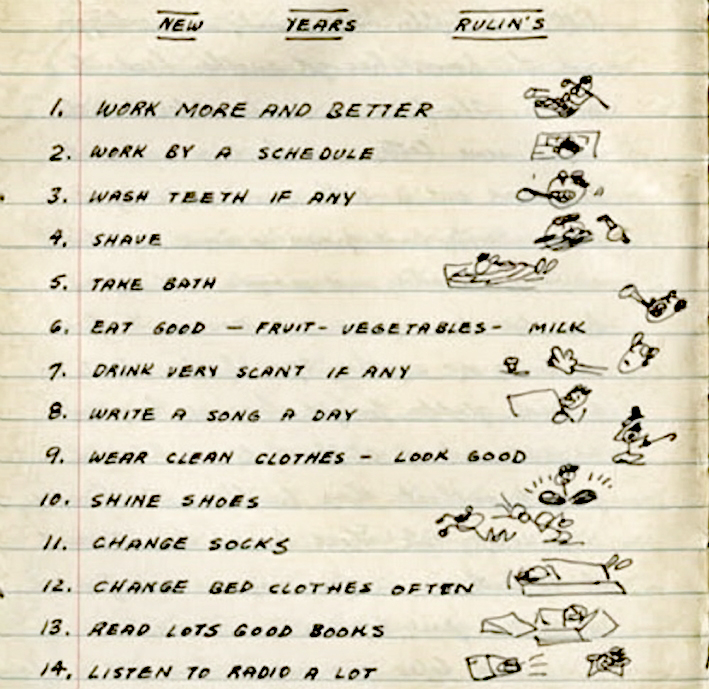 NEW YEARS RULIN'S
1. WORK MORE AND BETTER
2. WORK BY A SCHEDULE
3. WASH TEETH IF ANY
4. SHAVE
5. TAKE BATH
6. EAT GOOD — FRUIT - VEGETABLES - MILK
7. DRINK VERY SCANT IF ANY
8. WRITE A SONG A DAY
9. WEAR CLEAN CLOTHES — LOOK GOOD
10. SHINE SHOES
11. CHANGE SOCKS
12. CHANGE BED CLOTHES OFTEN
13. READ LOTS GOOD BOOKS
14. LISTEN TO RADIO A LOT